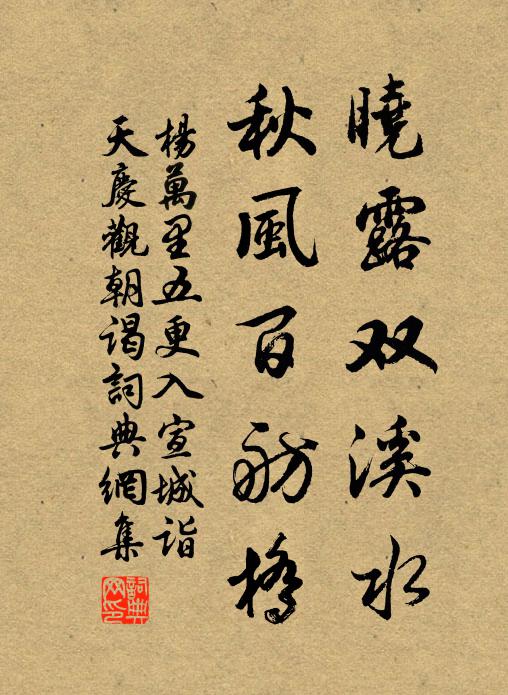 曉露双溪水
秋風百舫橋
楊萬里五更入宣城詣
天慶觀朝謁詞典網集
詞典
网印